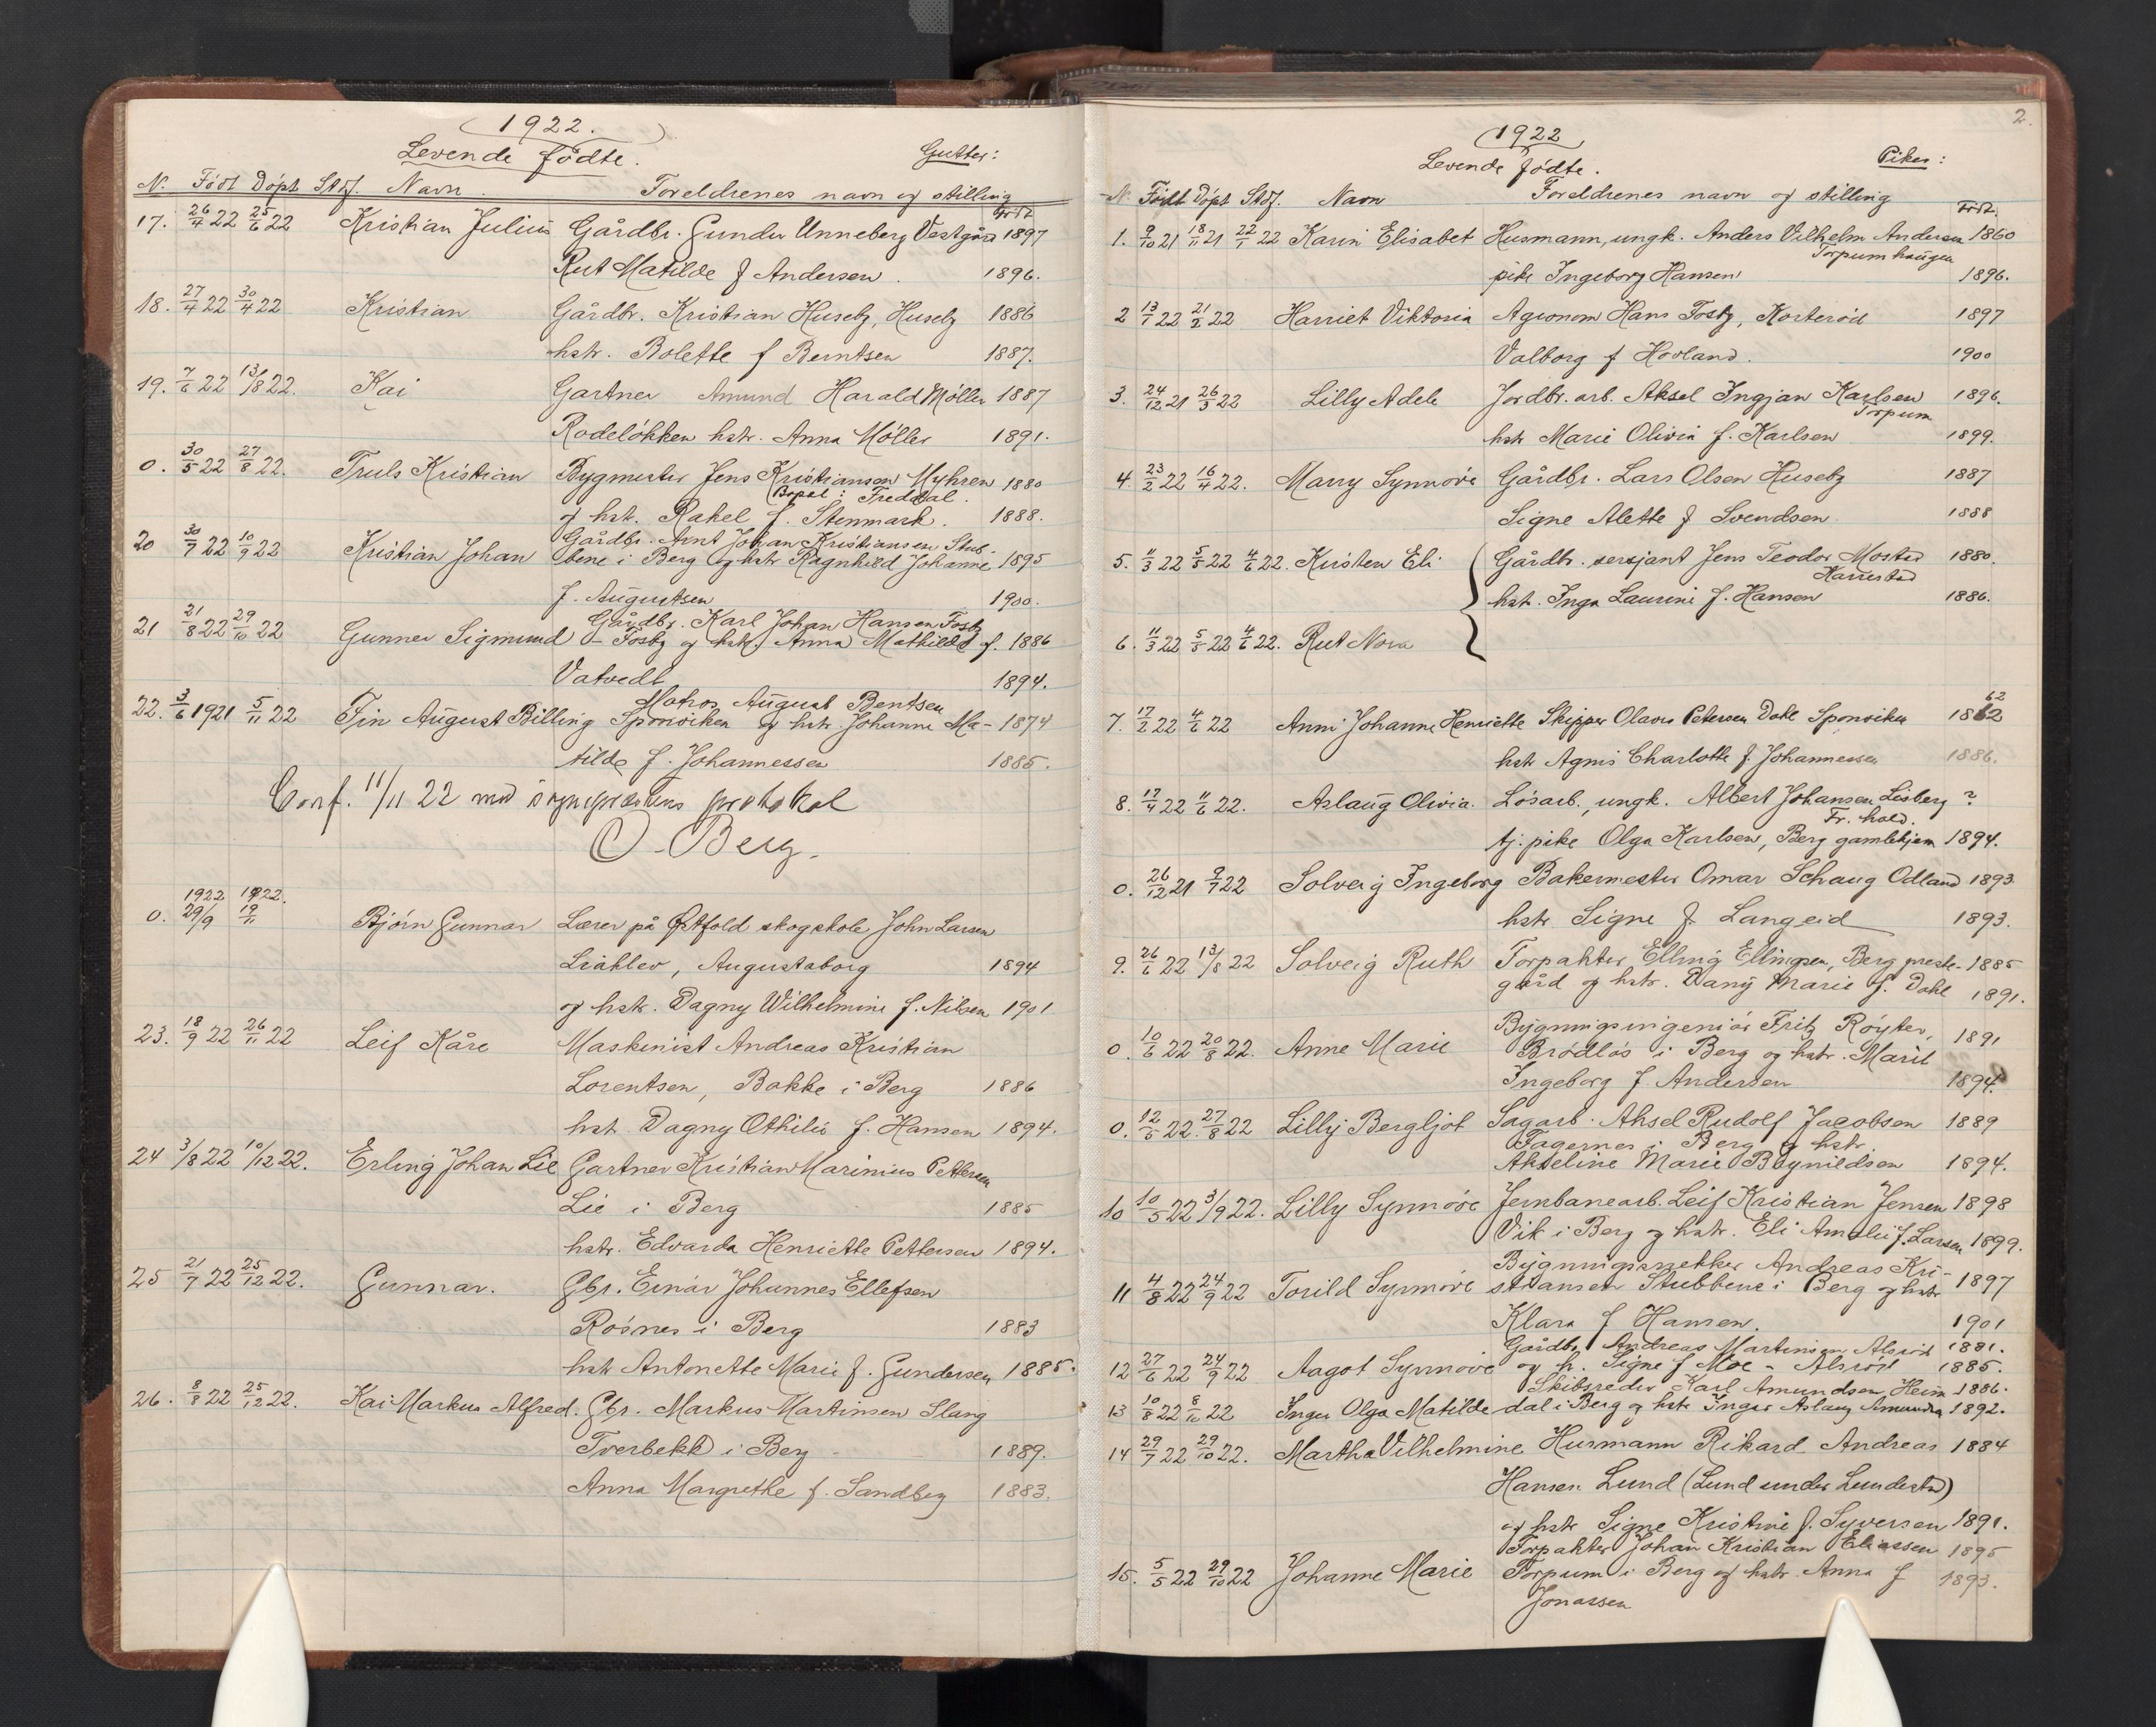 1922.
Levende födte. Gutter:
N. Födt Döpt Stdf. Navn. Foreldrenes navn og stilling
Født
17. 26/4 22 25/6 22 Kristian Julius Gårdbr. Gunder Unneberg Vestgård 1897
Rut Matilde f Andersen. 1896.
18. 27/4 22 30/4 22 Kristian Gårdbr. Kristian Huseby, Huseby 1886
hstr. Bolette f Berntsen 1887.
19. 7/6 22 13/8 22. Kai Gartner Amund Harald Møller 1887
Rodeløkken hstr. Anna Møller 1891.
0. 30/5 22 27/8 22. Truls Kristian Bygmester Jens Kristiansen Myhren 1880
Bopel: Freddal.
og hst. Rakel f. Stenmark. 1888.
Gårdbr. Arnt Johan Kristiansen Stub-
20 30/7 22 10/9 22 Kristian Johan bene i Berg og hstr Ragnhild Johanne 1895
f. Augustsen 1900.
Gårdbr. Karl Johan Hansen Fosby
21 21/8 22 29/10 22 Gunner Sigmund - Fosby og hstr. Anna Mathilde f. 1886
Vatvedt 1894.
Matros August Bentsen
22. 3/6 1921 5/11 22 Fin August Billing Sponviken og hstr. Johanne Ma- 1874
tilde f. Johannessen 1885.
Conf. 11/11 22 med sogneprestens protokol
O. Berg.
1922 1922.
0. 29/9 19/11 Bjørn Gunnar Lærer på Østfold skogskole John Larsen
Liahlev, Augustaborg 1894
og hstr. Dagny Wilhelmine f. Nilsen 1901
23. 18/9 22 26/11 22 Leif Kåre Maskinist Andreas Kristian
Lorentsen, Bakke i Berg 1886
hst. Dagny Othilie f. Hansen 1894.
24 3/8 22 10/12 22. Erling Johan Lie Gartner Kristian Marinius Pettersen
Lie i Berg 1885
hstr. Edvarda Henriette Pettersen 1894.
25 21/7 22 25/12 22. Gunnar. Gbr. Einar Johannes Ellefsen
Rosnes i Berg 1883
hstr Antonette Marie f. Gundersen 1885.
26. 8/8 22 25/12 22. Kai Markus Alfred. Gbr. Markus Martinsen Slang
Tverbekk i Berg 1889.
Anna Margrethe f. Sandberg 1883.
2.
1922
Levende födte. Piker:
N. Födt Döpt Stdf. Navn Foreldrenes navn og stilling
Født.
1. 9/10 21 18/11 21 22/1 22 Karin Elisabet Husmann, ungk. Anders Vilhelm Andersen 1860
Torpumhaugen
pike Ingeborg Hansen 1896.
2 13/1 22 21/2 22 Harriet Viktoria Agronom Hans Fosby, Korterød 1897
Valborg f Hovland. 1900
3. 24/12 21 26/3 22 Lilly Adele Jordbr. arb. Aksel Ingjan Karlsen 1896.
Torpum
hstr Marie Olivia f. Karlsen 1899.
4. 23/2 22 16/4 22. Marry Synnøve Gårdbr. Lars Olsen Huseby 1887
Signe Alette f Svendsen 1888
5. 11/3 22 5/5 22 4/6 22. Kirsten Eli Gårdbr. sersjant Jens Teodor Mostad 1880.
Harrestad
hstr. Inga Laurine f. Hansen 1886.
6. 11/3 22 5/5 22 4/6 22. Rut Nora
62
7. 17/2 22 4/6 22 Anni Johanne Henriette Skipper Olaves Petersen Dahl Sponviken 1862
hstr Agnes Charlotte f. Johannessen 1886.
8. 17/4 22 11/6 22. Aslaug Olivia. Løsarb., ungk. Albert Johansen Lisberg ?
Fr. hald.
tj. pike Olga Karlsen, Berg gamlehjem 1894.
0. 26/12 21 9/7 22 Solveig Ingeborg Bakermester Omar Schaug Odland 1893
hstr Signe f. Langeid 1893.
9. 26/6 22 13/8 22 Solveig Ruth Forpakter Elling Ellingsen, Berg preste- 1885
gård og hstr. Dany Marie f. Dahl 1891.
Bygningsingeniør Fritz Røyter, 1891
0. 10/6 22 20/8 22. Anne Marie Brødløs i Berg og hstr. Marit
Ingeborg f. Andersen 1894.
0. 12/5 22. 27/8 22 Lilly Bergljot Sagarb. Aksel Rudolf Jacobsen 1889
Fagernes i Berg og hstr.
Akseline Marie Brynildsen 1894.
10 10/5 22 3/9 22. Lilly Synnøve Jernbanearb. Leif Kristian Jensen 1898
Vik i Berg og hstr. Eli Amalie f. Larsen 1899.
Bygningssnekker Andreas Kri-
11 4/8 22 24/9 22 Torild Synnøve stiansen Stubbene i Berg og hstr 1897
Klara f Hansen. 1901
Gårdbr. Andreas Martinsen Alsrød 1881.
12 27/6 22 24/9 22 Aagot Synnøve og h. Signe f Moe - Alsrød 1885.
Skibsreder Karl Amundsen, Heim 1886.
13 10/8 22 8/10 22 Inger Olga Matilde dal i Berg og hstr Inger Aslaug Amundsen 1892.
14 29/7 22 29/10 22. Martha Vilhelmine Husmann Rikard Andreas 1884
Hansen Lund (Lund under Lundestad)
og hstr Signe Kristine f. Syversen 1891.
Forpakter Johan Kristian Eliassen 1895
15. 5/5 22 29/10 22 Johanne Marie Torpum i Berg og hstr. Anna f 1893.
Jonassen